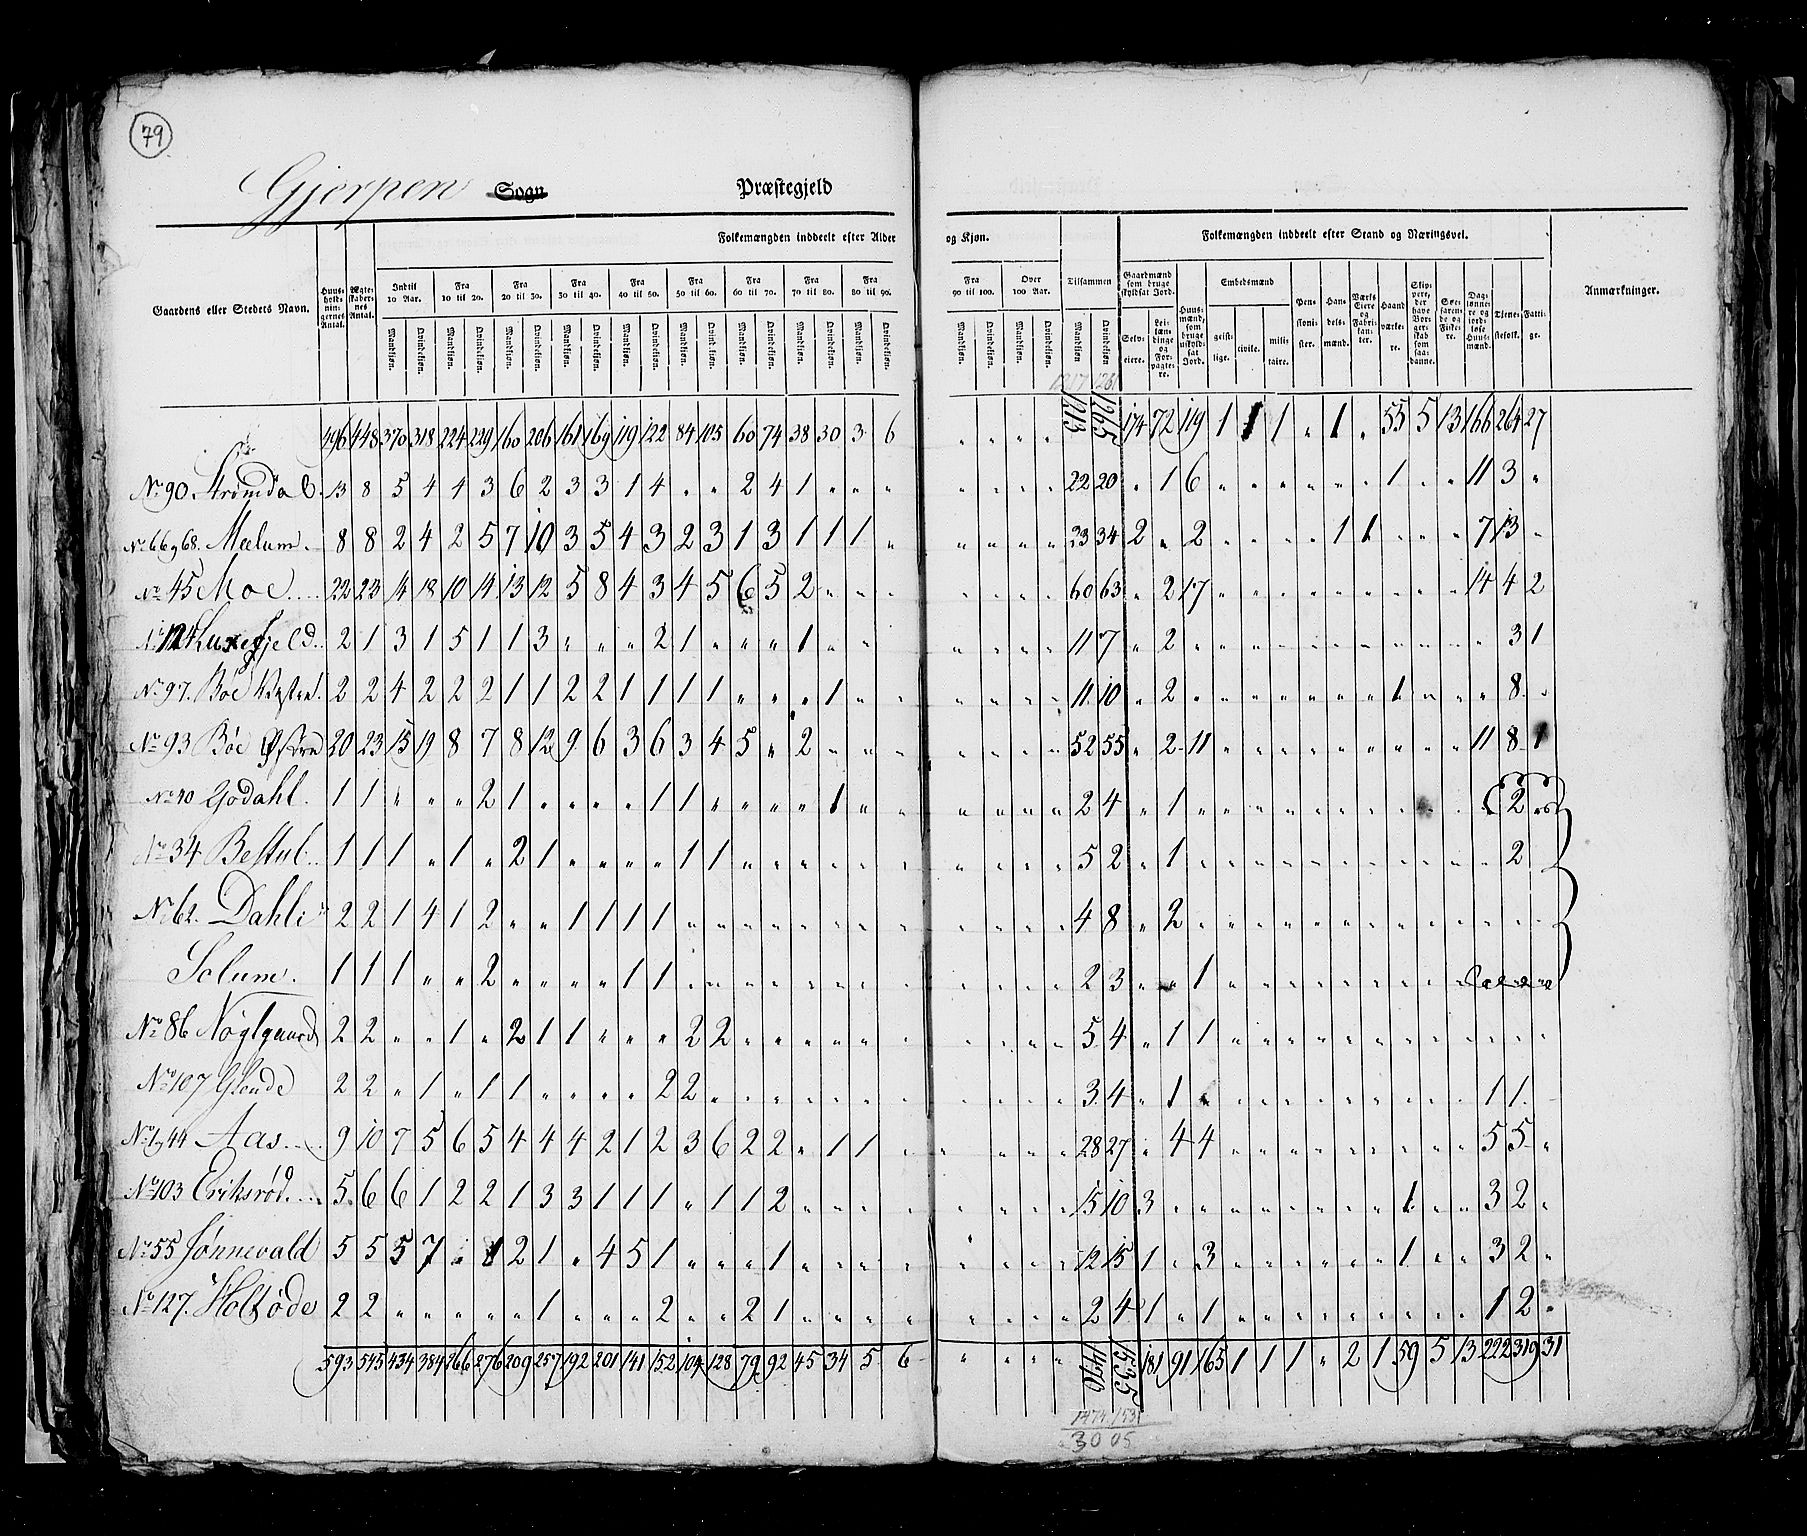 79
Gjerpen Sogn Præstegjeld
Folkemængden inddeelt efter Alder og Kjøn. Folkemængden inddeelt efter Stand og Næringsvei.
Gaardens eller Stedets Navn. Huusholdningernes Antal. Ægteskabernes Antal. Indtil 10 Aar. Fra 10 til 20. Fra 20 til 30. Fra 30 til 40. Fra 40 til 50. Fra 50 til 60. Fra 60 til 70. Fra 70 til 80. Fra 80 til 90. Fra 90 til 100. Over 100 Aar. Tilsammen Gaardmænd som bruge skyldsat Jord. Huusmænd, som bruge uskyldsat Jord. Embedsmænd Pensionister. Handelsmænd. Værks Eiere og Fabrikanter. Haandværkere. Skippere, der have Borgerskab som saadanne. Søefarende og Fiskere. Daglønnere og jordløse Huusmænd. Tienestefolk. Fattige. Anmærkninger.
Mandkjøn. Qvindekjøn. Mandkjøn. Qvindekjøn. Mandkjøn. Qvindekjøn. Mandkjøn. Qvindekjøn. Mandkjøn. Qvindekjøn. Mandkjøn. Qvindekjøn. Mandkjøn. Qvindekjøn. Mandkjøn. Qvindekjøn. Mandkjøn. Qvindekjøn. Mandkjøn. Qvindekjøn. Mandkjøn. Qvindekjøn. Mandkjøn Qvindekjøn. Selveiere. Leilændinge og Forpagtere. geistlige. civile. militaire.
1217 1261
496 448 370 318 224 229 160 206 161 169 119 122 84 105 60 74 38 30 3 6 " " " " 1213 1265 174 72 119 1 1 1 " 1 " 55 5 13 166 264 27
No 90. Strømdal. 13 8 5 4 4 3 6 2 3 3 1 4 " " 2 4 1 " " " " " " " 22 20 " 1 6 " " " " " " 1 " " 11 3 "
No 66 og 68. Mælum. 8 8 2 4 2 5 7 10 3 5 4 3 2 3 1 3 1 1 1 " " " " " 23 34 2 " 2 " " " " 1 1 " " " 7 13 "
No 45 Moe 22 23 14 18 10 14 13 12 5 8 4 3 4 5 6 5 2 " " " " " " " 60 63 " 2 17 " " " " " " " " " 14 4 2
No 124 Luxefjeld. 2 1 3 1 5 1 1 3 " " " 2 1 " " " 1 " " " " " " 11 7 " 2 " " " " " " " " " " " 3 1
No 97. Bøe Vestre. 2 2 4 2 2 2 1 1 2 2 1 1 1 1 " " " 1 " " " " " " 11 10 " 2 " " " " " " " 1 " " " 8 "
No 93 Bøe Østre 20 23 15 19 8 7 8 12 9 6 3 6 3 4 5 " 2 " " " " " " " 52 55 " 2 11 " " " " " " " " " 11 8 1
No 40 Godahl. 1 1 " " " 2 1 " " " " 1 1 " " " " 1 " " " " " " 2 4 " 1 " " " " " " " " " " " 2
No 34 Bestul. 1 1 1 " 1 " 2 1 " " " " 1 1 " " " " " " " " " " 5 2 " 1 " " " " " " " " " " " 2
No 62. Dahli 2 2 1 4 1 2 " " 1 1 1 1 " " " " " " " " " " " " 4 8 " 2 " " " " " " " " " " " " "
Solum. 1 1 1 " " 2 " " " " 1 1 " " " " " " " " " " " " 2 3 " " 1 " " " " " " " " "
No 86 Nøglgaard 2 2 " " 1 " 2 1 1 " " " 2 2 " " " " " " " " " " 5 4 " 1 1 " " " " " " " " " " " "
No 107 Glende 2 2 " 1 " 1 1 " " " " 2 2 " " " " " " " " " " 3 4 " 1 " " " " " " " " " " 1 1
No 1 og 44 Aas 9 10 7 5 6 5 4 4 4 2 1 2 3 6 2 2 " 1 1 " " " " " 28 27 " 4 4 " " " " " " " " " 5 5 "
No 103 Eriksrød 5 6 6 1 2 2 1 3 3 1 1 1 " 1 1 2 " " " " " " " " 15 10 3 " " " " " " " " 1 " " 3 2 "
No 55 Sønnevald 5 5 5 7 " 1 2 1 " 4 5 1 " " " 1 " " " " " " " " 12 15 1 " 3 " " " " " " 1 " " 3 2 "
No 127. Holtøde 2 2 " " " " " 1 " " " 2 " " 2 1 " " " " " " " " 2 4 1 " 1 " " " " " " " " " 1 2 "
593 545 434 384 266 276 209 257 192 201 141 152 104 128 79 92 45 34 5 6 " " " " 1470 1535 181 91 165 1 1 1 " 2 1 59 5 13 222 319 31
1474 153
3005